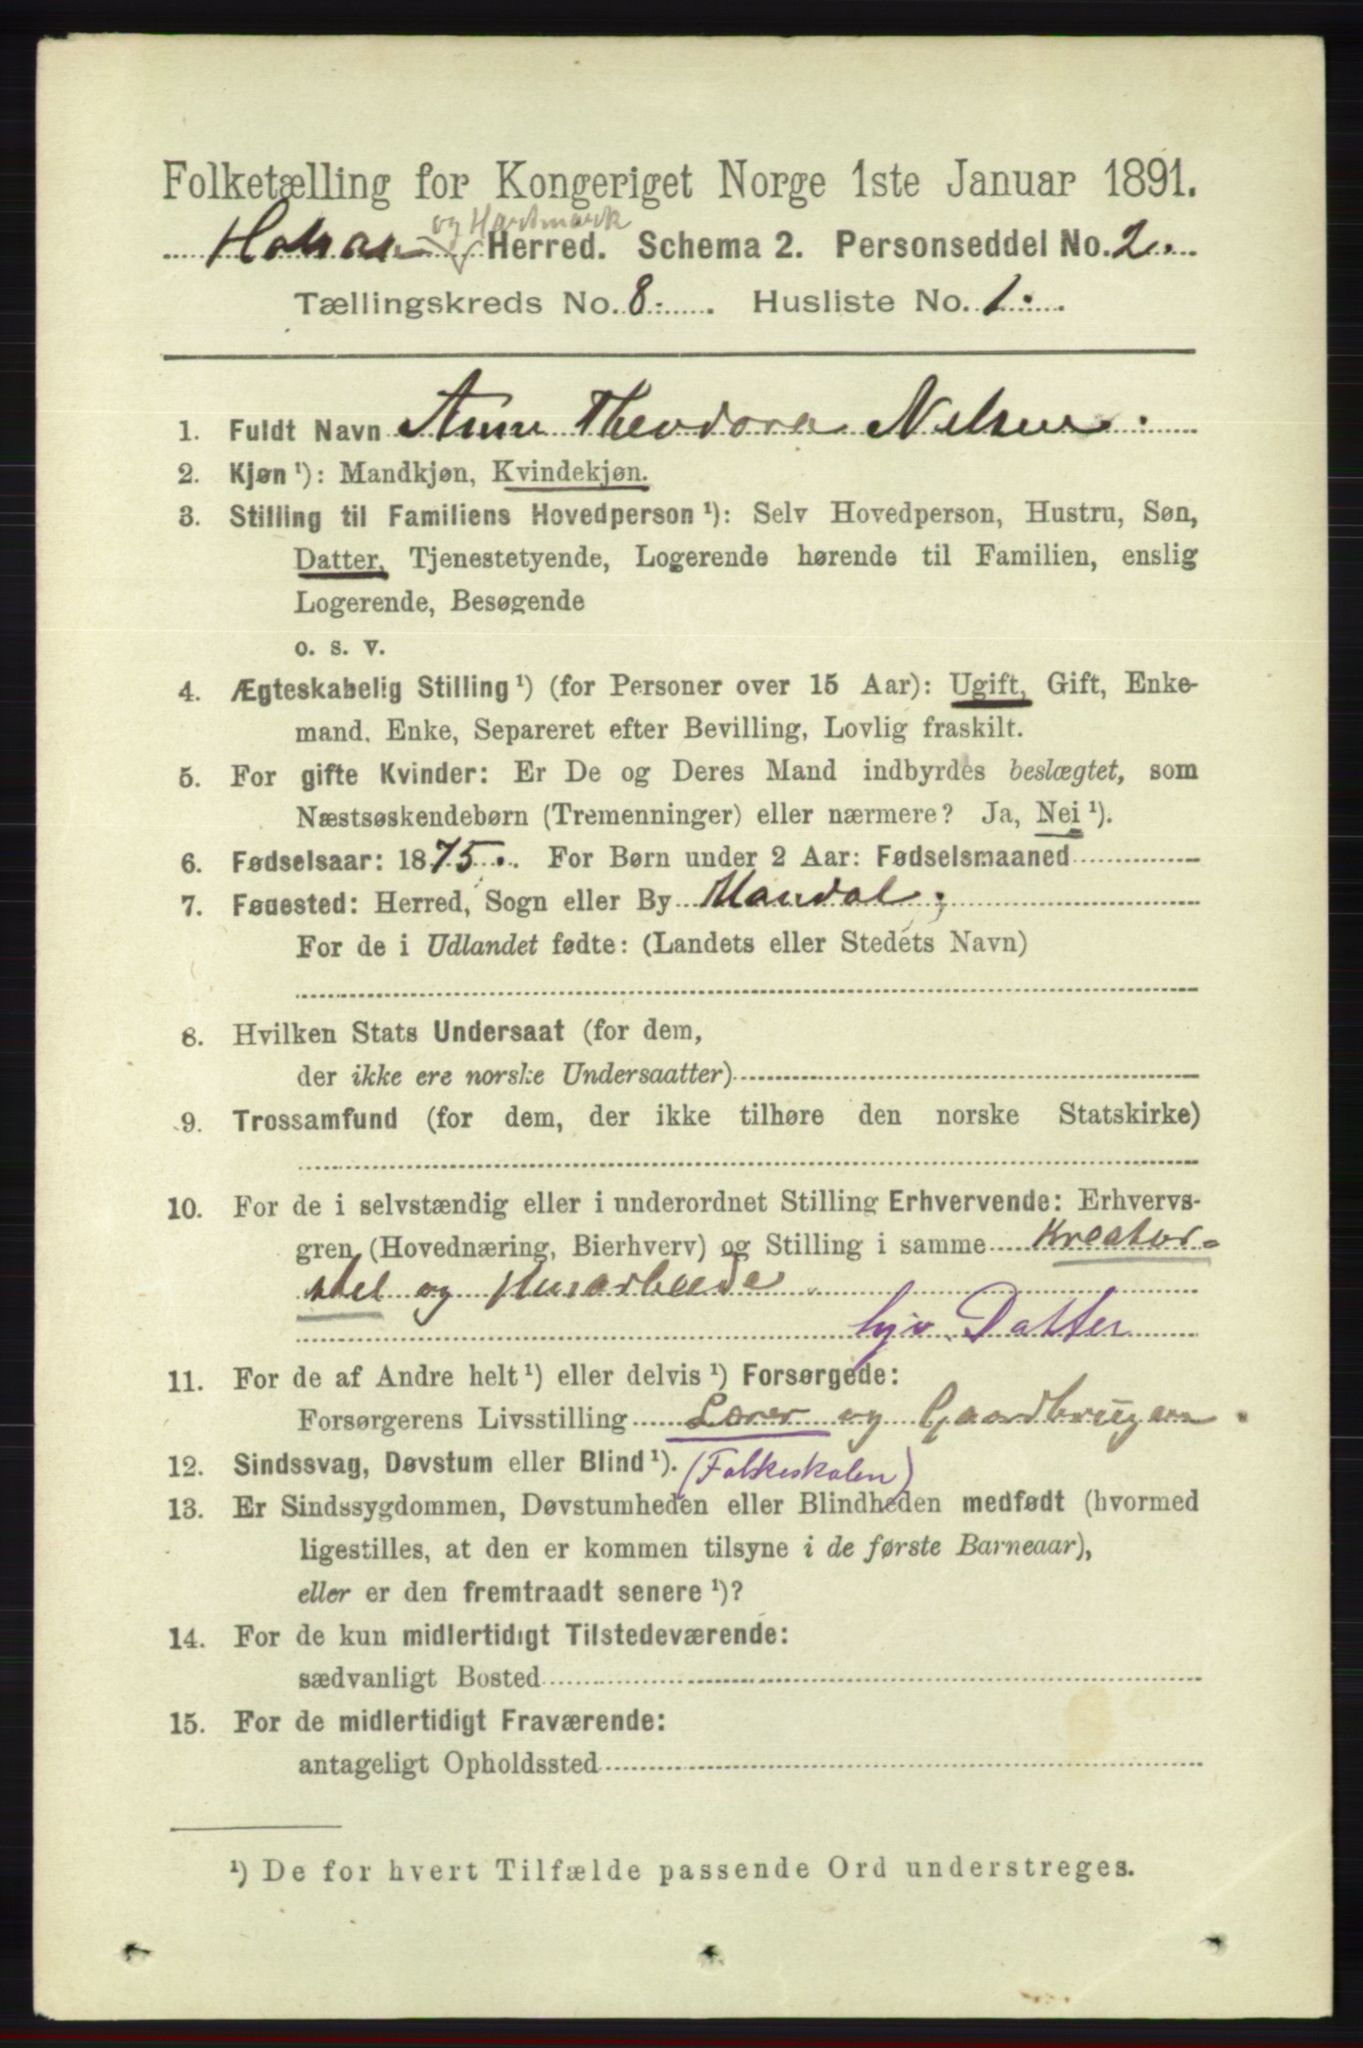 Folketælling for Kongeriget Norge 1ste Januar 1891.
og Hartmark
Herred. Schema 2. Personseddel No. 2.
Tællingskreds No. 8. Husliste No. 1.
1. Fuldt Navn Anne Theodora Nilsen.
2. Kjøn ¹): Mandkjøn, Kvindekjøn.
3. Stilling til Familiens Hovedperson ¹): Selv Hovedperson, Hustru, Søn,
Datter, Tjenestetyende, Logerende hørende til Familien, enslig
Logerende, Besøgende
o. s. v.
4. Ægteskabelig Stilling ¹) (for Personer over 15 Aar): Ugift, Gift, Enke-
mand. Enke, Separeret efter Bevilling, Lovlig fraskilt.
5. For gifte Kvinder: Er De og Deres Mand indbyrdes beslægtet, som
Næstsøskendebørn (Tremenninger) eller nærmere? Ja, Nei ¹).
6. Fødselsaar: 1875. For Børn under 2 Aar: Fødselsmaaned
7. Fødested: Herred, Sogn eller By Mandal;
For de i Udlandet fødte: (Landets eller Stedets Navn)
8. Hvilken Stats Undersaat (for dem,
der ikke ere norske Undersaatter)
9. Trossamfund (for dem, der ikke tilhøre den norske Statskirke)
10. For de i selvstændig eller i underordnet Stilling Erhvervende: Erhvervs-
gren (Hovednæring, Bierhverv) og Stilling i samme Kreatur-
stel og Husarbeide.
hjv. Datter
11. For de af Andre helt ¹) eller delvis ¹) Forsørgede:
Forsørgerens Livsstilling Lærer og Gaardbruger.
12. Sindssvag, Døvstum eller Blind ¹). (Folkeskolen)
13. Er Sindssygdommen, Døvstumheden eller Blindheden medfødt (hvormed
ligestilles, at den er kommen tilsyne i de første Barneaar),
eller er den fremtraadt senere ¹)?
14. For de kun midlertidigt Tilstedeværende:
sædvanligt Bosted
15. For de midlertidigt Fraværende:
antageligt Opholdssted
¹) De for hvert Tilfælde passende Ord understreges.